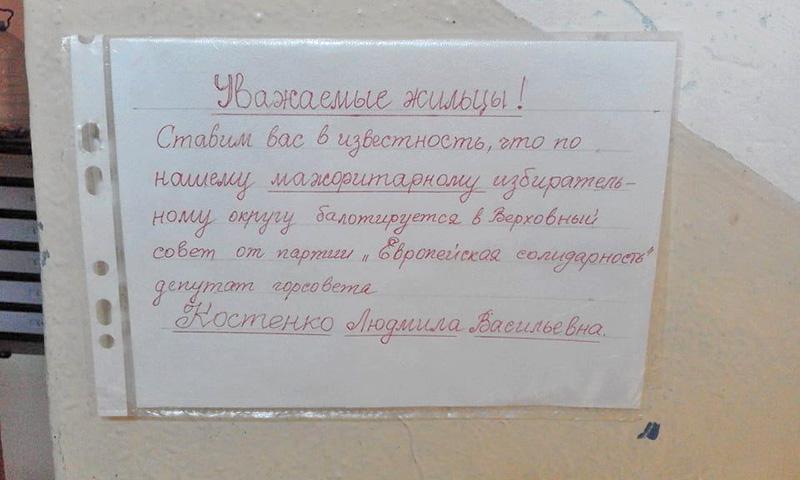 Уважаемые жильцы!
Ставим вас в известность, что по
нашему мажоритарному избиратель-
ному округу балотируется в Верховный
совет от партии „Европейская солидарность"
депутат горсовета
Костенко Людмила Васильевна.